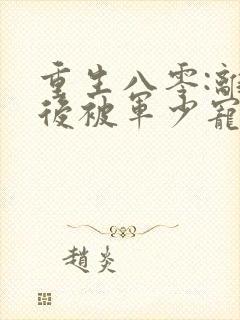 重生八零:離
後被軍少寵
趙炎